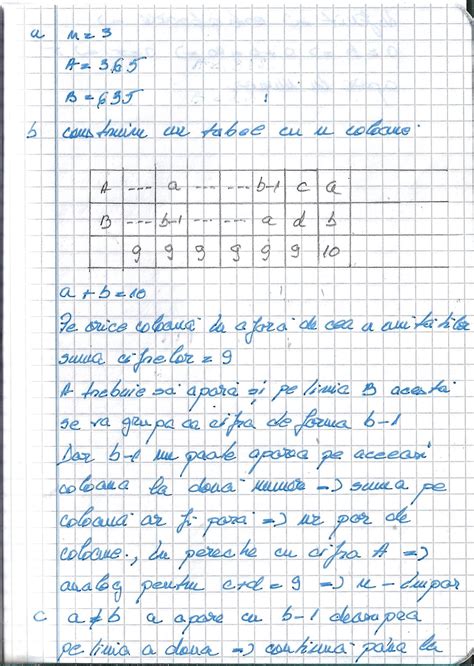 a n = 3
A = 365
B = 635
b construim un tabel cu n coloane
A --- a --- --- b-1 c a
B --- b-1 --- --- a d b
9 9 9 9 9 9 10
a + b = 10
Pe orice coloană în afară de cea a unităților
suma cifrelor = 9
A trebuie să apară și pe linia B aceasta
se va grupa cu cifra de forma b-1
Dar b-1 nu poate apărea pe aceeași
coloană la două numere => suma pe
coloană ar fi pară => nr par de
coloane., în pereche cu cifra A =>
analog pentru c+d = 9 => n - impar
c a ≠ b a apare cu b-1 deasupra
pe linia a doua => continuă până la